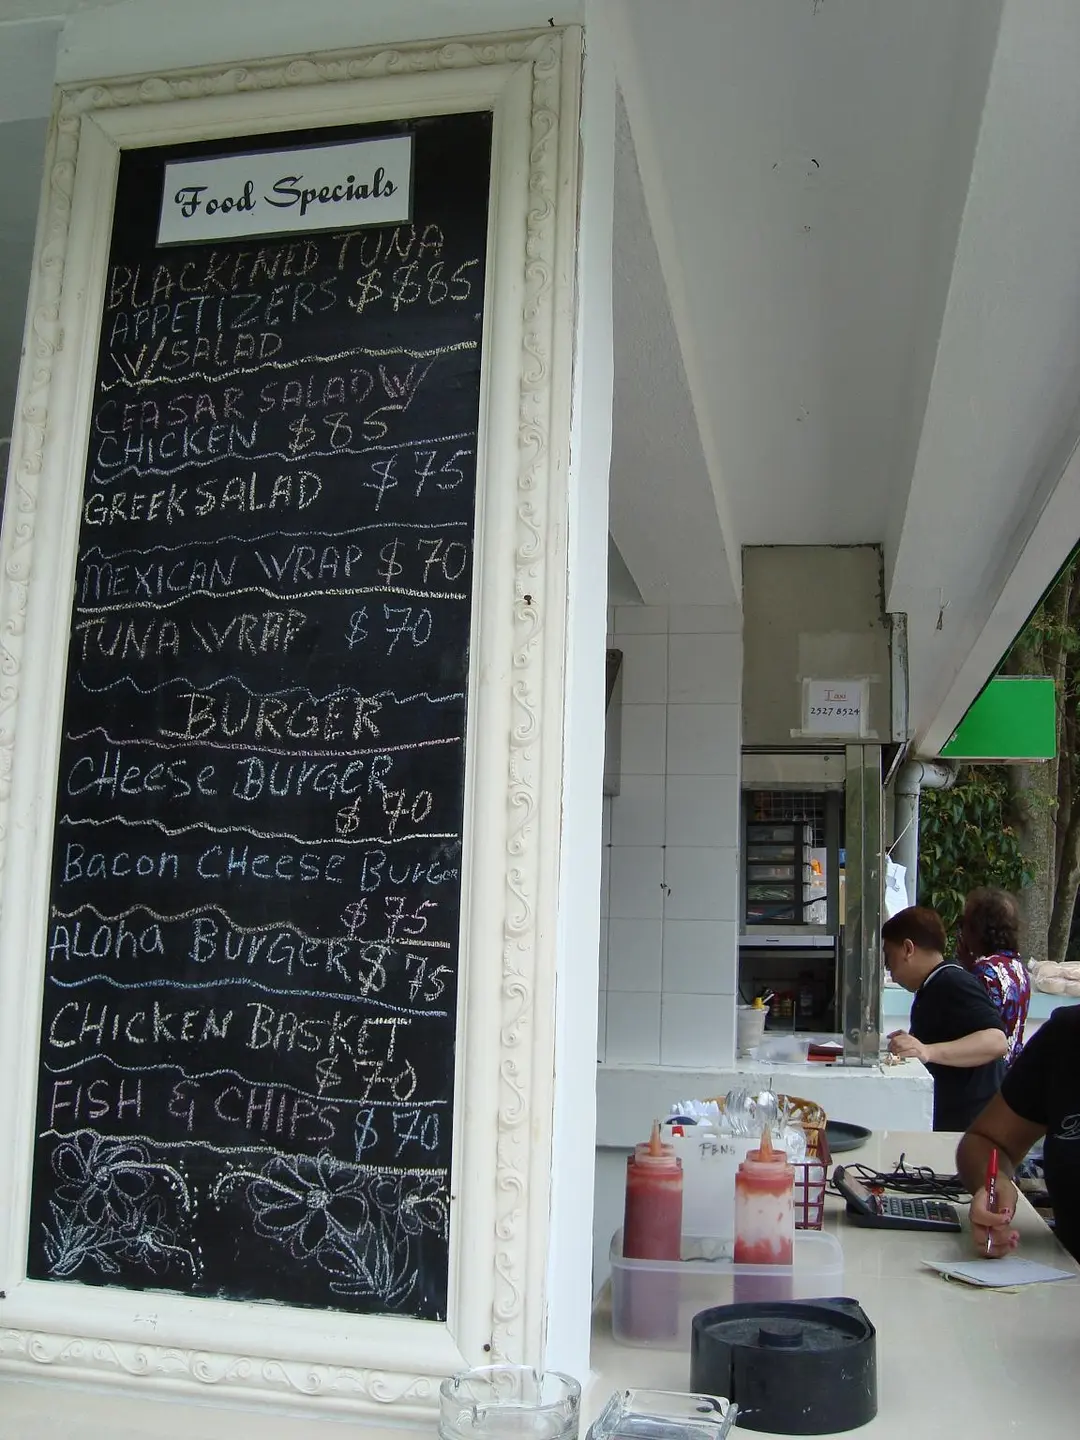 Food Specials
BLACKENED TUNA
APPETIZERS $ $85
W/SALAD
CEASAR SALAD W/
CHICKEN $85
GREEK SALAD $75
MEXICAN WRAP $70
TUNA WRAP $70
BURGER
CHeese BURGER
$70
Bacon CHeese Burger
$75
ALoHa BUrGeR $75
CHICKEN BASKET
$70
FISH & CHIPS $70
Taxi
2527 8524
PENS